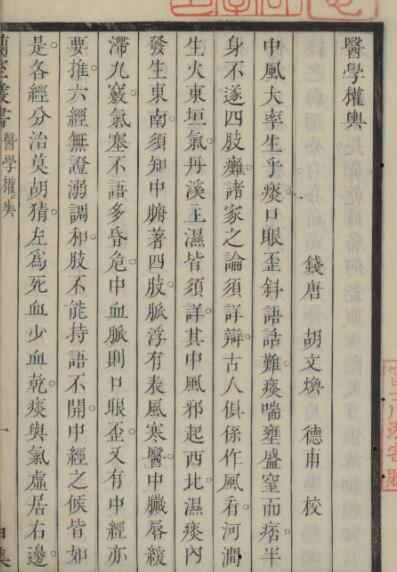 醫學權輿
錢唐 胡文煥 德甫 校
中風大率生乎痰口眼歪斜語話難痰喘壅盛窒而痞半
身不遂四肢癱諸家之論須詳辯古人俱係作風看河澗
生火東垣氣丹溪主濕皆須詳其中風邪起西北濕痰內
發生東南須知中腑著四肢脈浮有表風寒醫中臟唇緩
滯九竅氣塞不語多昏危中血脈則口眼歪又有中經亦
要推六經無證溺調和肢不能持語不開中經之候皆如
是各經分治莫胡猜左為死血少血乾痰與氣虛居右邊
醫學權輿
一